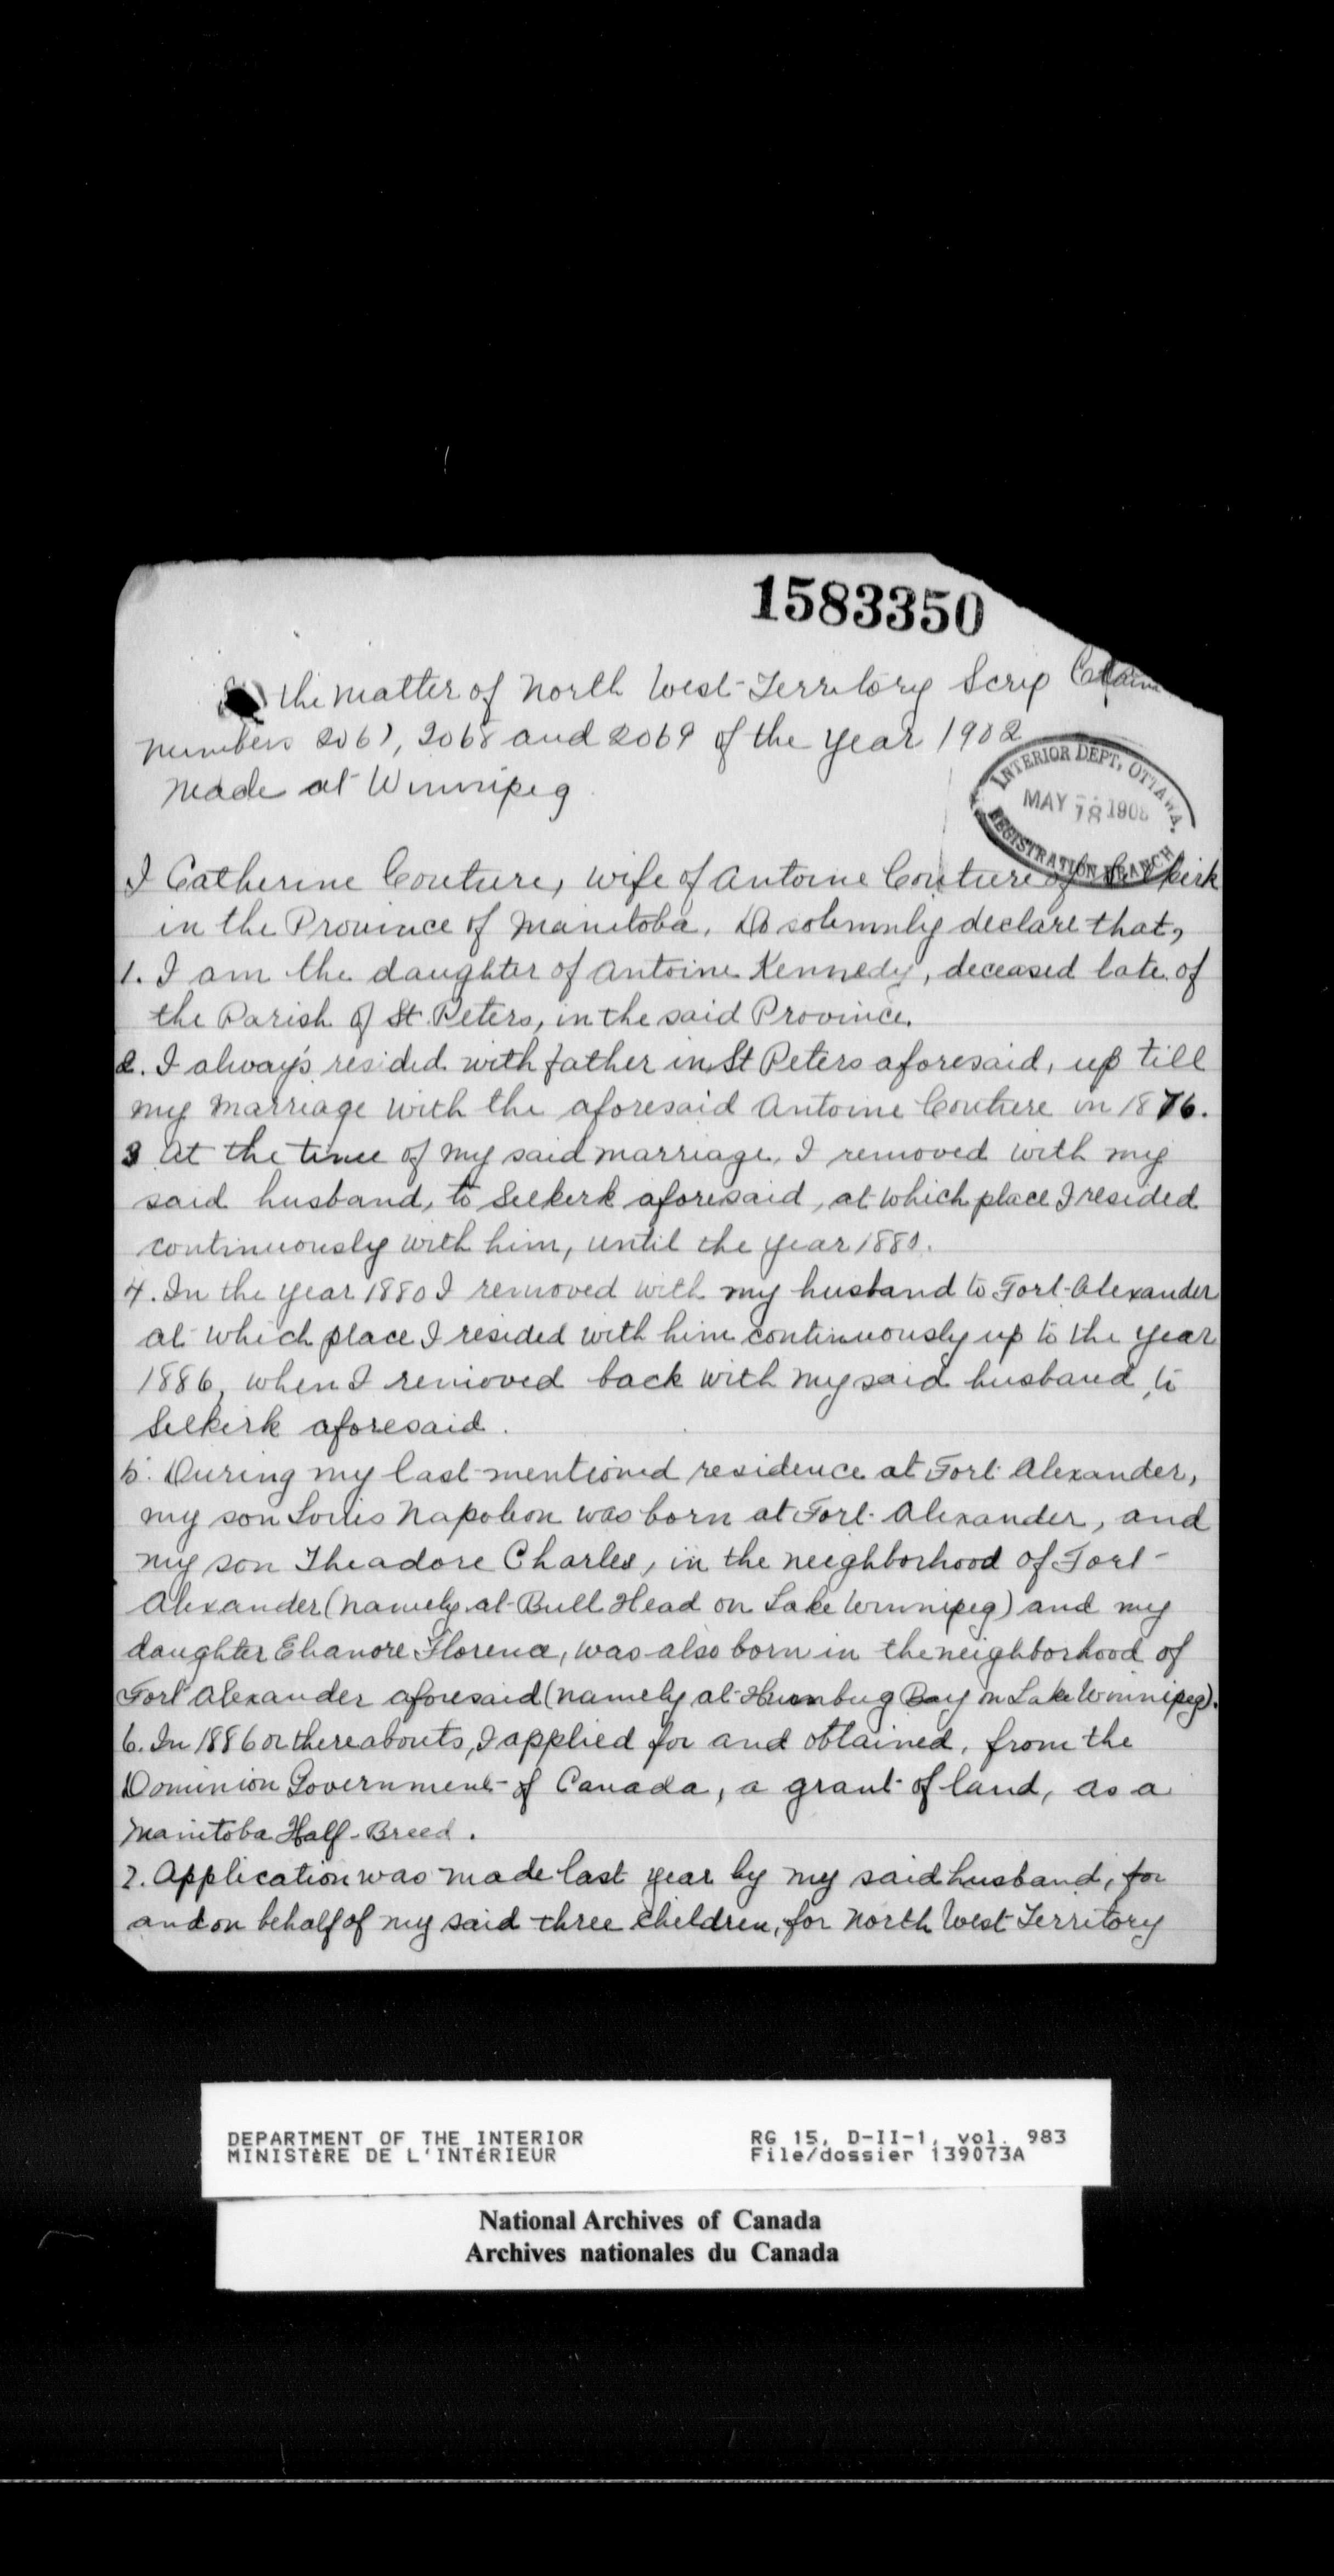 1583350
In the matter of North West Territory Scrip Claim
numbers 2067, 2068 and 2069 of the year 1902
made at Winnipeg
INTERIOR DEPT, OTTAWA.
MAY 1903
REGISTRATION BRANCH
I Catherine Couture, wife of Antoine Couture of Selkirk
in the Province of Manitoba, Do solemnly declare that,
1. I am the daughter of Antoine Kennedy, deceased late of
the Parish of St. Peters, in the said Province.
2. I always resided with father in St Peters aforesaid, up till
my marriage with the aforesaid Antoine Couture in 1876.
3 At the time of my said marriage, I removed with my
said husband, to Selkirk aforesaid, at which place I resided
continuously with him, until the year 1880.
4. In the year 1880 I removed with my husband to Fort Alexander
at which place I resided with him continuously up to the year
1886, when I removed back with my said husband, to
Selkirk aforesaid.
5. During my last mentioned residence at Fort Alexander,
my son Louis Napoleon was born at Fort Alexander, and
my son Theadore Charles, in the neighborhood of Fort
Alexander (namely at Bull Head on Lake Winnipeg) and my
daughter Elianore Florence, was also born in the neighborhood of
Fort Alexander aforesaid (namely at Humbug Bay on Lake Winnipeg).
6. In 1886 or thereabouts, I applied for and obtained, from the
Dominion Government of Canada, a grant of land, as a
Manitoba Half-Breed.
7. Application was made last year by my said husband, for
and on behalf of my said three children, for North West Territory
DEPARTMENT OF THE INTERIOR RG 15, D-II-1, vol. 983
MINISTÈRE DE L'INTÉRIEUR File/dossier 139073A
National Archives of Canada
Archives nationales du Canada